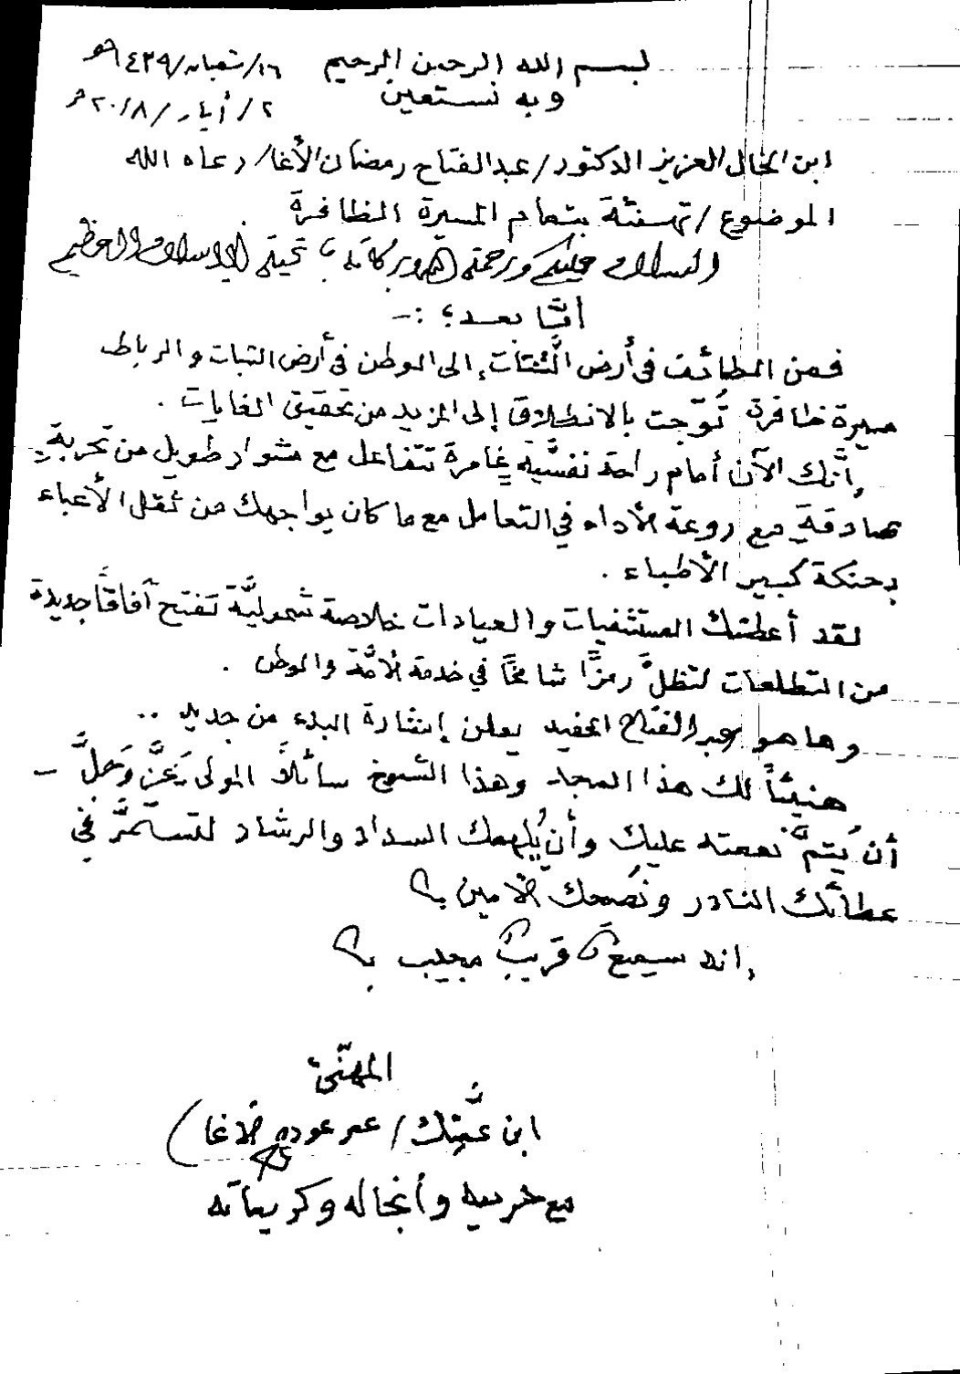 بسم الله الرحمن الرحيم ١٦/شعبان/١٤٣٩هـ
وبه نستعين ٢/أيار/٢٠١٨م
ابن الخال العزيز الدكتور/عبدالفتاح رمضان الأغا/رعاه الله
الموضوع/تهنئة بتمام المسيرة الظافرة
السلام عليكم ورحمة الله وبركاته تحية الإسلام العظيم
أمّا بعد؛ :-
فمن الطائف في أرض الشتات، إلى الوطن في أرض الثبات والرباط
مسيرة ظافرة تُوّجت بالانطلاق إلى المزيد من تحقيق الغايات .
إنَّك الآن أمام راحة نفسيَّة غامرة تتفاعل مع مشوار طويل من تجربةٍ
صادقةٍ مع روعة الأداء في التعامل مع ما كان يواجهك من ثقل الأعباء
بحنكة كبير الأطباء .
لقد أعطتك المستشفيات والعيادات خلاصة شموليَّة تفتح آفاقاً جديدة
من التطلعات لتظلَّ رمزًا شامخًا في خدمة الأمَّة والوطن .
وها هو عبدالفتاح الحفيد يعلن إشارة البدء من جديد ..
هنيئاً لك هذا المجد وهذا الشموخ سائلاً المولى عَزَّ وَجَلَّ -
أن يُتمَّ نعمته عليك وأن يُلهمك السداد والرشاد لتستمرَّ في
عطائك النادر ونُصحك الأمين
إنه سميعٌ قريبٌ مجيب
المهنّئ
ابن عمَّتِك/عمر عوده الأغا
مع حرمه وأنجاله وكريماته